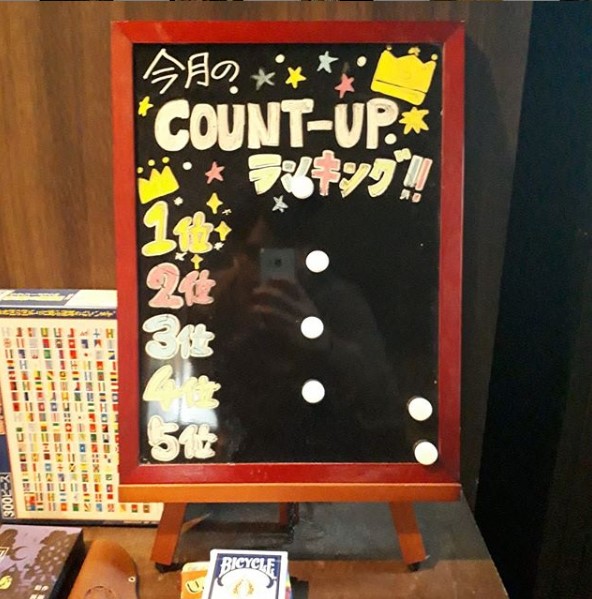 今月の
COUNT-UP
ランキング!!
1位
2位
3位
4位
5位
300ピース
BICYCLE